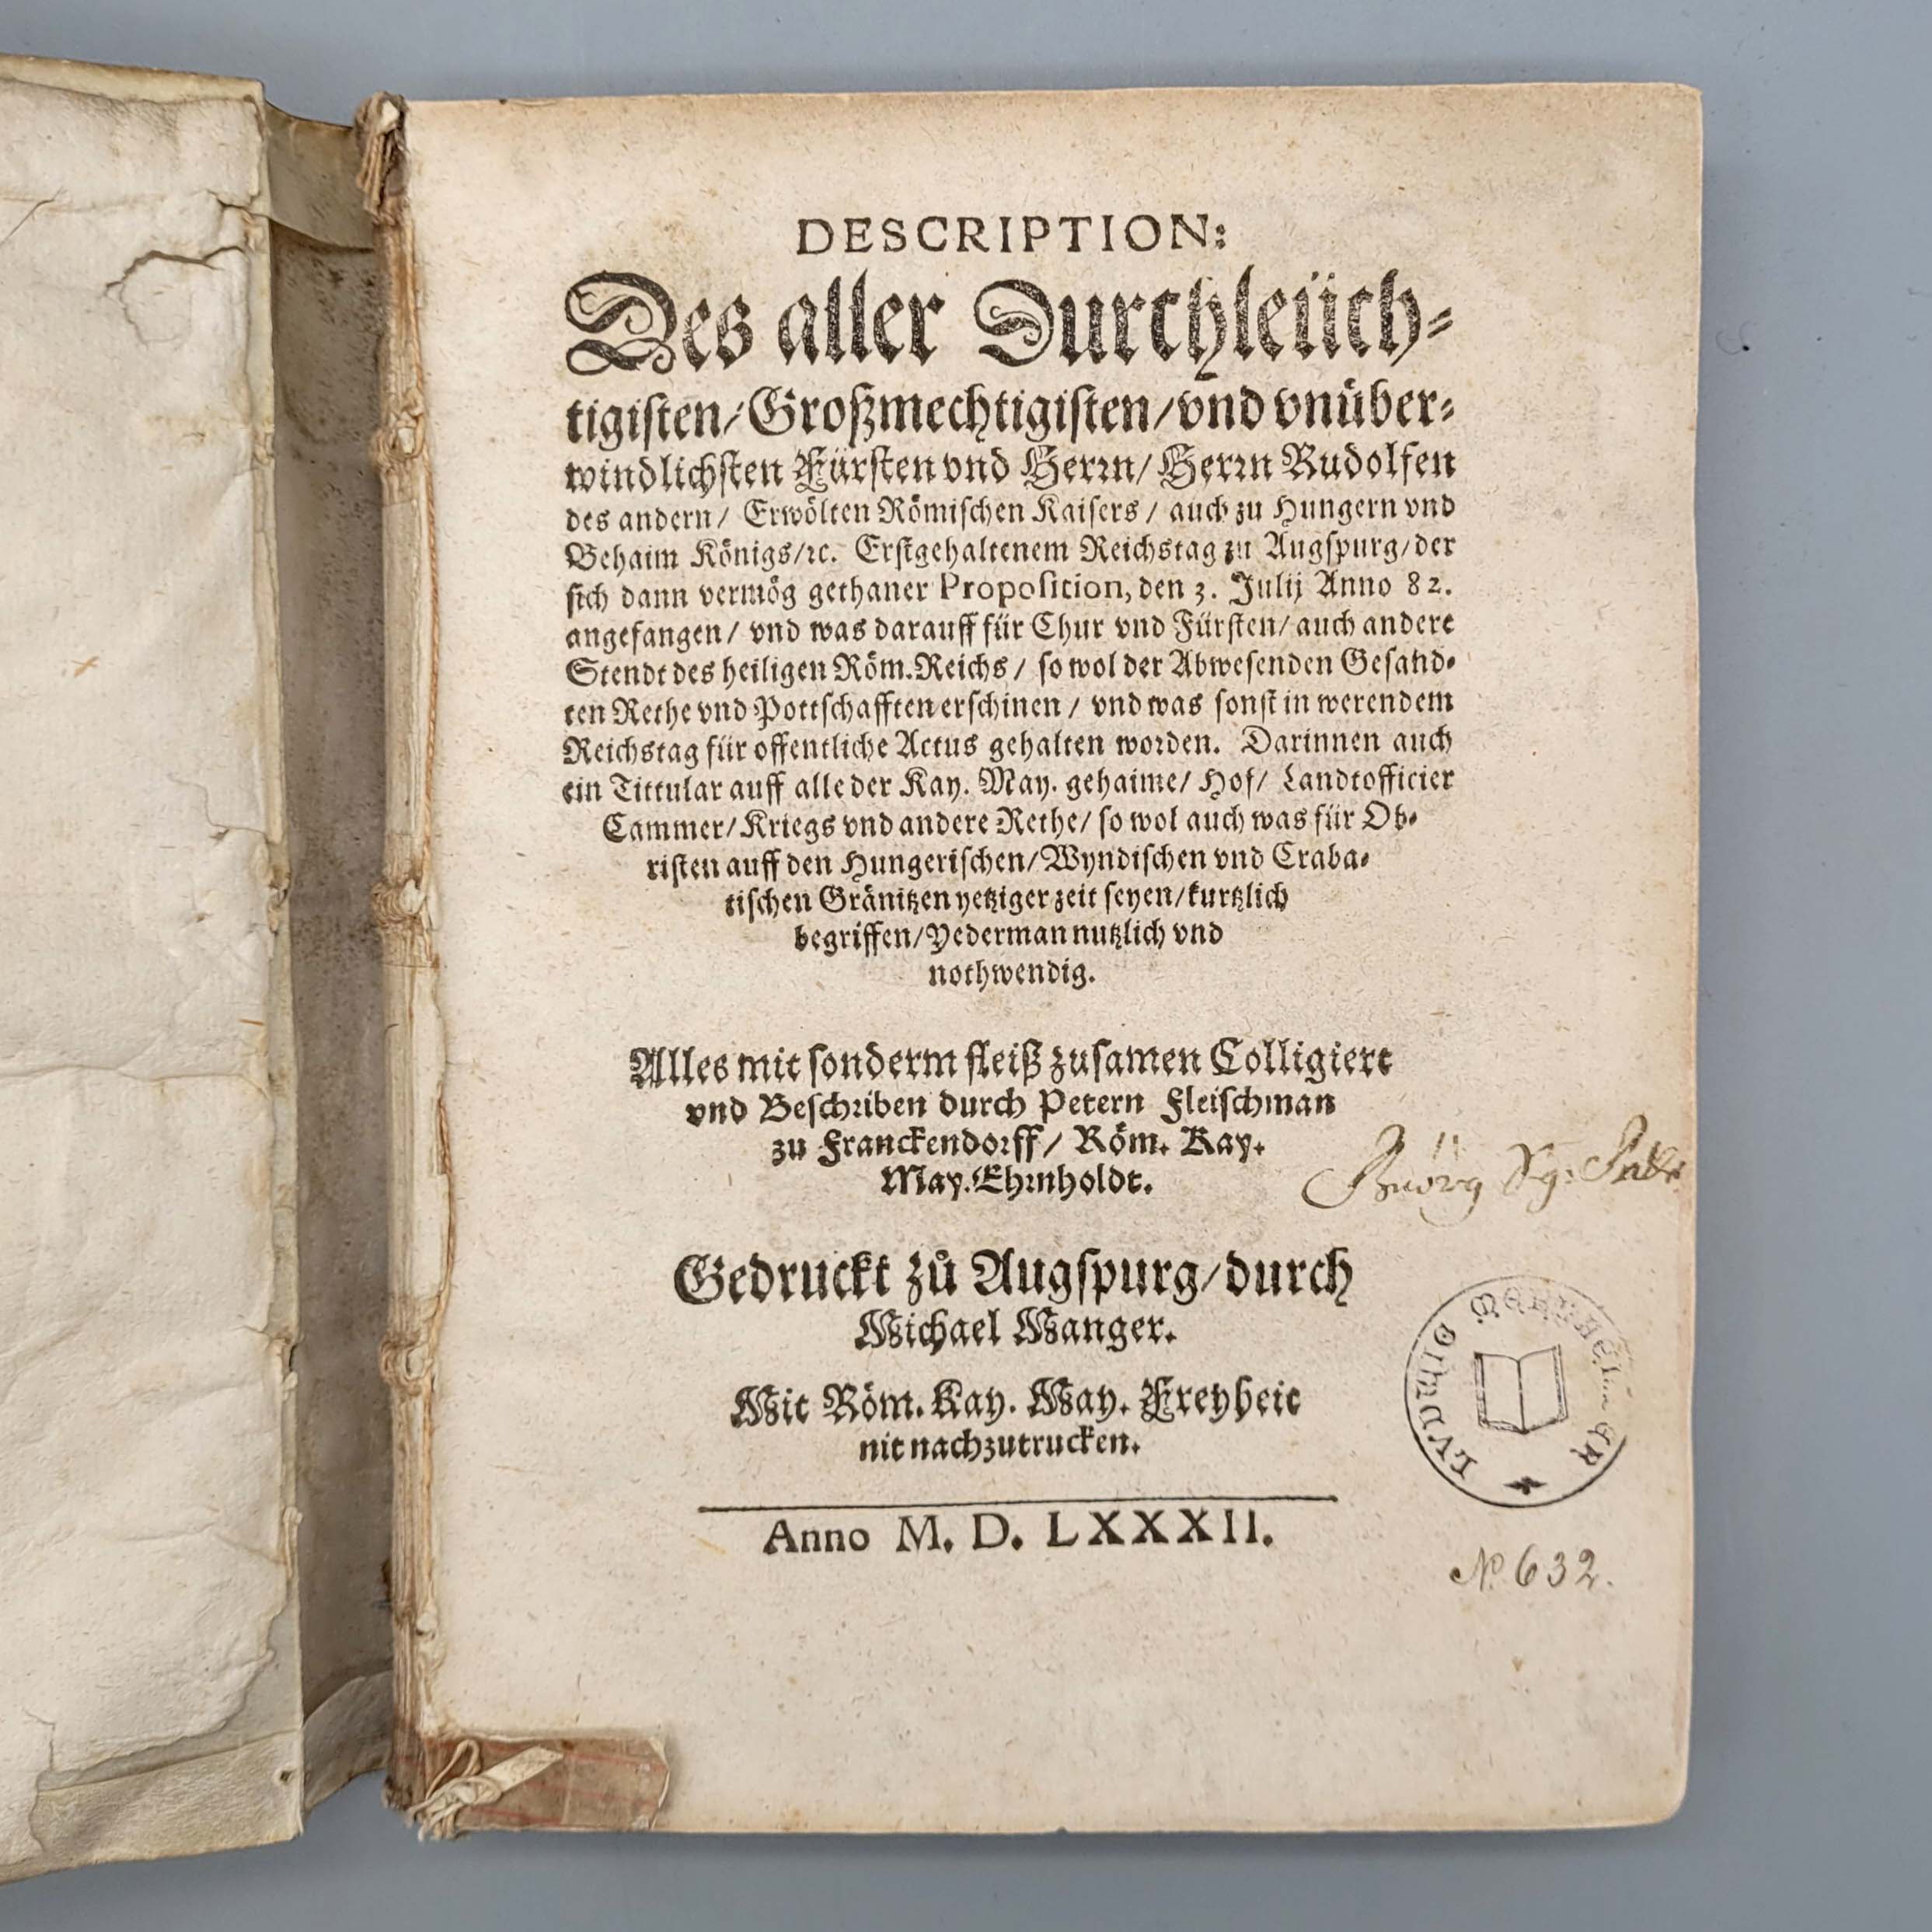 DESCRIPTION:
Des aller Durchleüch-
tigisten/Großmechtigisten/vnd vnüber-
windlichsten Fürsten vnd Herrn/ Herrn Rudolfen
des andern/ Erwölten Römischen Kaisers/ auch zu Hungern vnd
Behaim Königs/ꝛc. Erstgehaltenem Reichstag zu Augspurg/der
sich dann vermög gethaner Proposition, den 3. Julij Anno 82.
angefangen/ vnd was darauff für Chur vnd Fürsten/ auch andere
Stendt des heiligen Röm.Reichs/ so wol der Abwesenden Gesand-
ten Rethe vnd Pottschafften erschinen/ vnd was sonst in werendem
Reichstag für offentliche Actus gehalten worden. Darinnen auch
ein Tittular auff alle der Kay. May. gehaime/ Hof/ Landtofficier
Cammer/Kriegs vnd andere Rethe/ so wol auch was für Ob-
risten auff den Hungerischen/Wyndischen vnd Craba-
tischen Gränitzen yetziger zeit seyen/kurtzlich
begriffen/Yederman nutzlich vnd
nothwendig.
Alles mit sonderm fleiß zusamen Colligiert
vnd Beschriben durch Petern Fleischman
zu Franckendorff/ Röm. Kay.
May.Ehrnholdt.
Gedruckt zů Augspurg/durch
Michael Manger.
Mit Röm. Kay. May. Freyheit
nit nachzutrucken.
Anno M. D. LXXXII.
No 632.